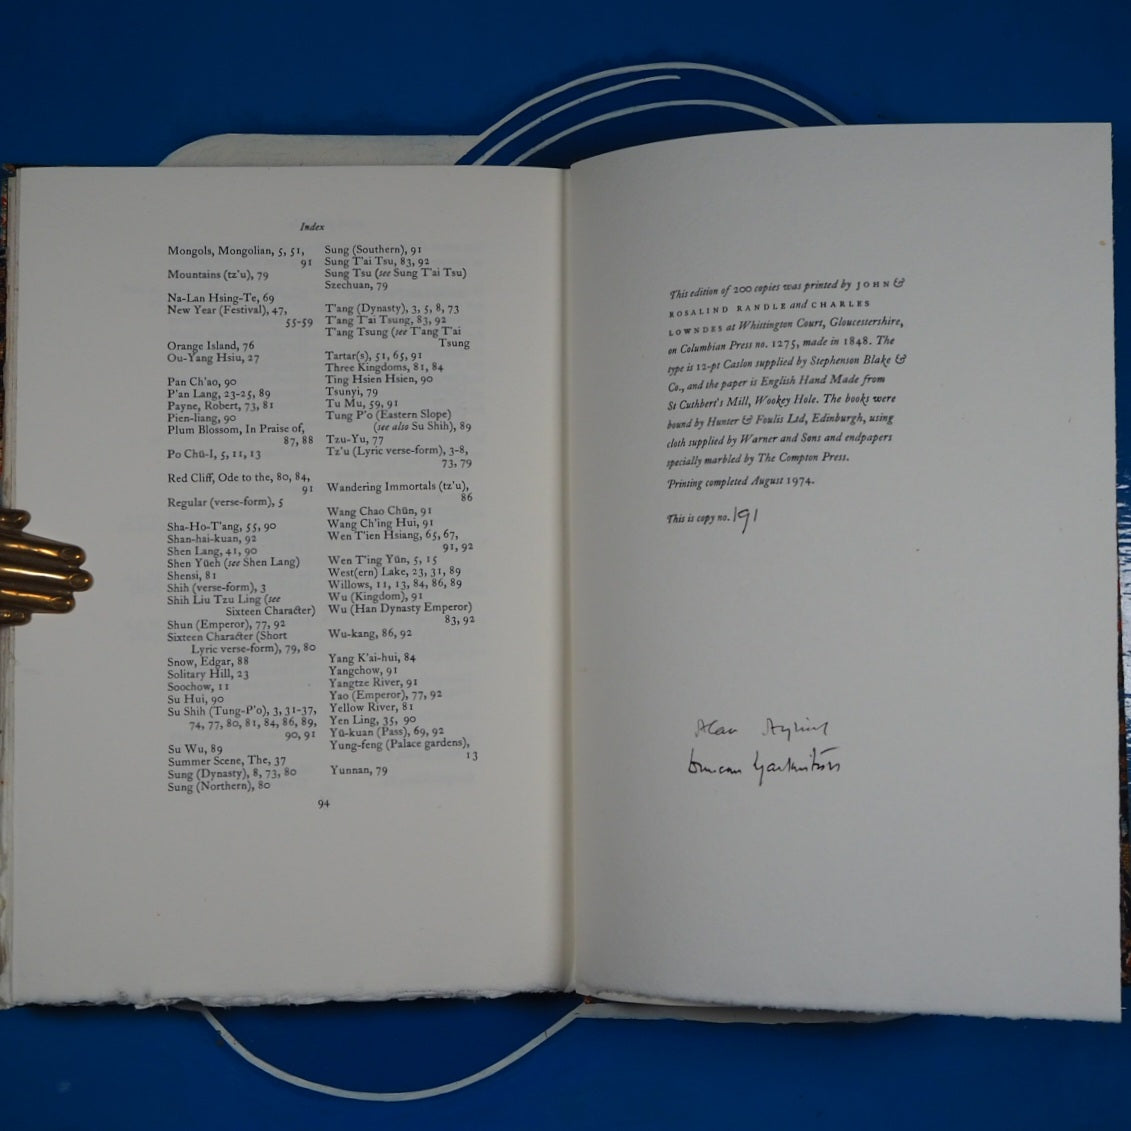 Index
Mongols, Mongolian, 5, 51,
91
Mountains (tz'u), 79
Na-Lan Hsing-Te, 69
New Year (Festival), 47,
55-59
Orange Island, 76
Ou-Yang Hsiu, 27
Pan Ch'ao, 90
P'an Lang, 23-25, 89
Payne, Robert, 73, 81
Pien-liang, 90
Plum Blossom, In Praise of,
87, 88
Po Chü-I, 5, 11, 13
Red Cliff, Ode to the, 80, 84,
91
Regular (verse-form), 5
Sha-Ho-T'ang, 55, 90
Shan-hai-kuan, 92
Shen Lang, 41, 90
Shen Yüeh (see Shen Lang)
Shensi, 81
Shih (verse-form), 3
Shih Liu Tzu Ling (see
Sixteen Character)
Shun (Emperor), 77, 92
Sixteen Character (Short
Lyric verse-form), 79, 80
Snow, Edgar, 88
Solitary Hill, 23
Soochow, 11
Su Hui, 90
Su Shih (Tung-P'o), 3, 31-37,
74, 77, 80, 81, 84, 86, 89,
90, 91
Su Wu, 89
Summer Scene, The, 37
Sung (Dynasty), 8, 73, 80
Sung (Northern), 80
Sung (Southern), 91
Sung T'ai Tsu, 83, 92
Sung Tsu (see Sung T'ai Tsu)
Szechuan, 79
T'ang (Dynasty), 3, 5, 8, 73
T'ang T'ai Tsung, 83, 92
T'ang Tsung (see T'ang T'ai
Tsung
Tartar(s), 51, 65, 91
Three Kingdoms, 81, 84
Ting Hsien Hsien, 90
Tsunyi, 79
Tu Mu, 59, 91
Tung P'o (Eastern Slope)
(see also Su Shih), 89
Tzu-Yu, 77
Tz'u (Lyric verse-form), 3-8,
73, 79
Wandering Immortals (tz'u),
86
Wang Chao Chün, 91
Wang Ch'ing Hui, 91
Wen T'ien Hsiang, 65, 67,
91, 92
Wen T'ing Yün, 5, 15
West(ern) Lake, 23, 31, 89
Willows, 11, 13, 84, 86, 89
Wu (Kingdom), 91
Wu (Han Dynasty Emperor)
83, 92
Wu-kang, 86, 92
Yang K'ai-hui, 84
Yangchow, 91
Yangtze River, 91
Yao (Emperor), 77, 92
Yellow River, 81
Yen Ling, 35, 90
Yü-kuan (Pass), 69, 92
Yung-feng (Palace gardens),
13
Yunnan, 79
94
This edition of 200 copies was printed by JOHN &
ROSALIND RANDLE and CHARLES
LOWNDES at Whittington Court, Gloucestershire,
on Columbian Press no. 1275, made in 1848. The
type is 12-pt Caslon supplied by Stephenson Blake &
Co., and the paper is English Hand Made from
St Cuthbert's Mill, Wookey Hole. The books were
bound by Hunter & Foulis Ltd, Edinburgh, using
cloth supplied by Warner and Sons and endpapers
specially marbled by The Compton Press.
Printing completed August 1974.
This is copy no. 191
Alan Ayling
Duncan Mackintosh